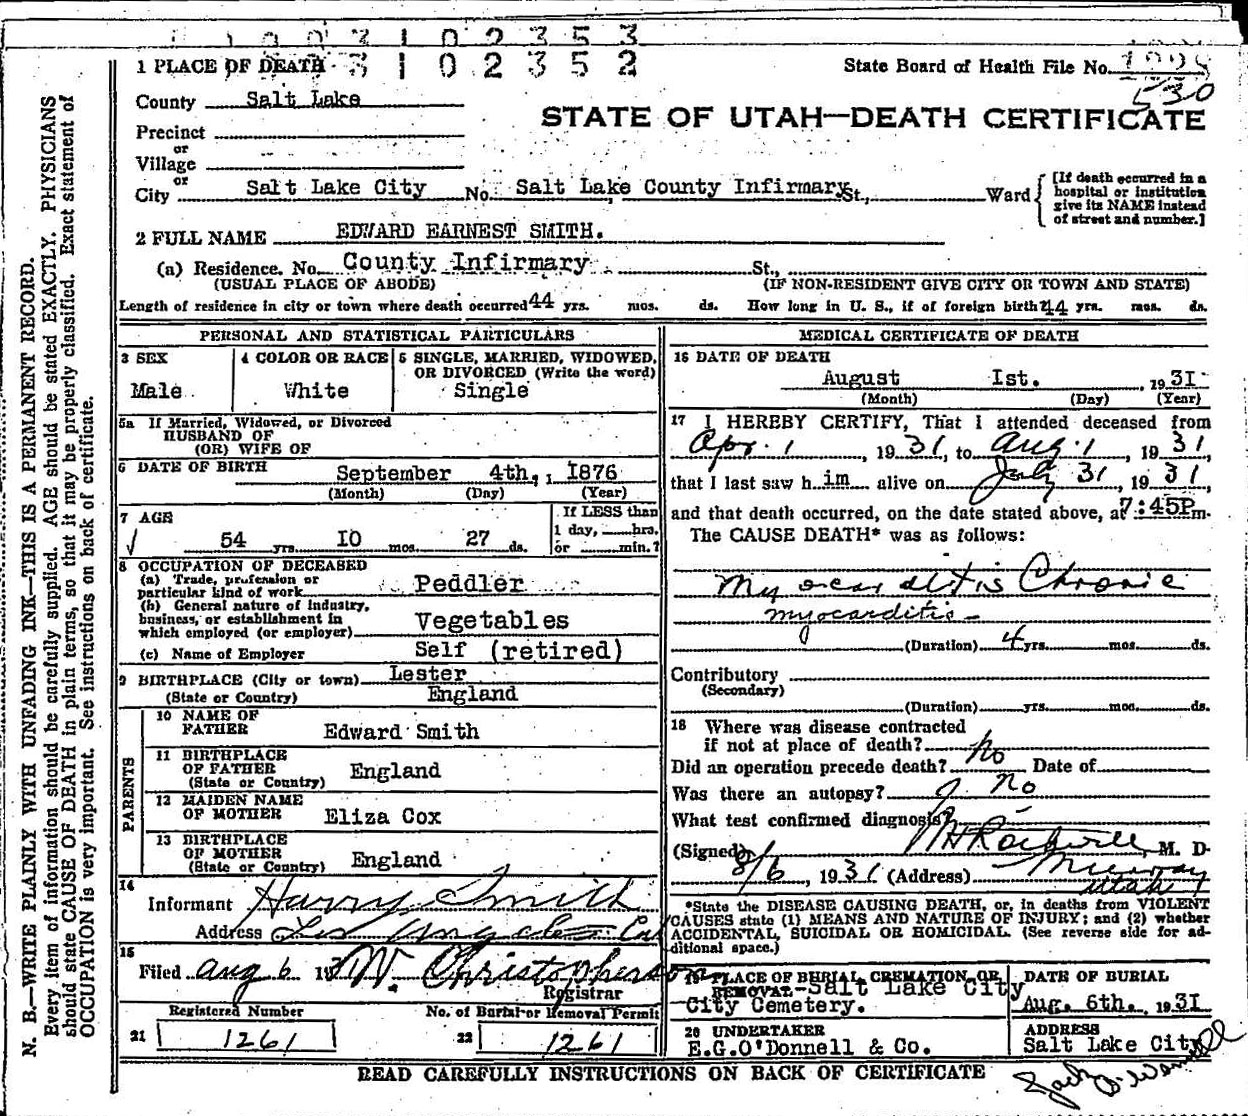 3 1 0 2 3 5 3
1 PLACE OF DEATH 3 1 0 2 3 5 2 State Board of Health File No.
530
County Salt Lake
STATE OF UTAH—DEATH CERTIFICATE
Precinct
or
Village
or
City Salt Lake City No. Salt Lake County Infirmary St., Ward
[If death occurred in a
hospital or institution
give its NAME instead
of street and number.]
2 FULL NAME EDWARD EARNEST SMITH.
(a) Residence. No. County Infirmary St.,
(USUAL PLACE OF ABODE) (IF NON-RESIDENT GIVE CITY OR TOWN AND STATE)
Length of residence in city or town where death occurred 44 yrs. mos. ds. How long in U. S., if of foreign birth? 44 yrs. mos. ds.
PERSONAL AND STATISTICAL PARTICULARS
3 SEX
Male
4 COLOR OR RACE
White
5 SINGLE, MARRIED, WIDOWED,
OR DIVORCED (Write the word)
Single
5a If Married, Widowed, or Divorced
HUSBAND OF
(OR) WIFE OF
6 DATE OF BIRTH
September 4th., 1876
(Month) (Day) (Year)
7 AGE
54 yrs. IO mos. 27 ds.
If LESS than
1 day, hrs.
or min.?
8 OCCUPATION OF DECEASED
(a) Trade, profession or
particular kind of work Peddler
(b) General nature of industry,
business, or establishment in
which employed (or employer) Vegetables
(c) Name of Employer Self (retired)
9 BIRTHPLACE (City or town) Lester
(State or Country) England
PARENTS
10 NAME OF
FATHER Edward Smith
11 BIRTHPLACE
OF FATHER
(State or Country) England
12 MAIDEN NAME
OF MOTHER Eliza Cox
13 BIRTHPLACE
OF MOTHER
(State or Country) England
14
Informant Harry Smith
Address Los Angeles Cal
15
Filed Aug 6 193 W. Christopherson
Registrar
Registered Number No. of Burial or Removal Permit
21 1261 22 1261
MEDICAL CERTIFICATE OF DEATH
16 DATE OF DEATH
August Ist. , 1931
(Month) (Day) (Year)
17 I HEREBY CERTIFY, That I attended deceased from
Apr. 1 , 1931, to Aug. 1 , 1931,
that I last saw him alive on July 31 , 1931,
and that death occurred, on the date stated above, at 7:45P m.
The CAUSE DEATH* was as follows:
Myocarditis Chronic
myocarditis—
(Duration) 4 yrs. mos. ds.
Contributory
(Secondary)
(Duration) yrs. mos. ds.
18 Where was disease contracted
if not at place of death?
Did an operation precede death? No Date of
Was there an autopsy? No
What test confirmed diagnosis?
(Signed) M. D.
8/6 , 1931 (Address) Murray
Utah
*State the DISEASE CAUSING DEATH, or, in deaths from VIOLENT
CAUSES state (1) MEANS AND NATURE OF INJURY; and (2) whether
ACCIDENTAL, SUICIDAL OR HOMICIDAL. (See reverse side for ad-
ditional space.)
19 PLACE OF BURIAL, CREMATION, OR
REMOVAL Salt Lake City
City Cemetery.
DATE OF BURIAL
Aug. 6th. , 1931
20 UNDERTAKER
E.G.O'Donnell & Co.
ADDRESS
Salt Lake City
READ CAREFULLY INSTRUCTIONS ON BACK OF CERTIFICATE
N. B.—WRITE PLAINLY WITH UNFADING INK—THIS IS A PERMANENT RECORD.
Every item of information should be carefully supplied. AGE should be stated EXACTLY. PHYSICIANS
should state CAUSE OF DEATH in plain terms, so that it may be properly classified. Exact statement of
OCCUPATION is very important. See instructions on back of certificate.